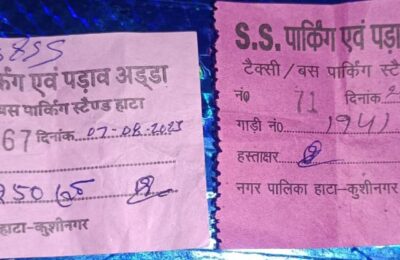 र्किंग एवं पड़ाव अड्डा
बस पार्किंग स्टैण्ड हाटा
67 दिनांक 07-08-2023
हाटा-कुशीनगर
S.S. पार्किंग एवं पड़ा
टैक्सी / बस पार्किंग स्टै
नं० 71 दिनांक
गाड़ी नं० 1941
हस्ताक्षर
नगर पालिका हाटा-कुशीनगर